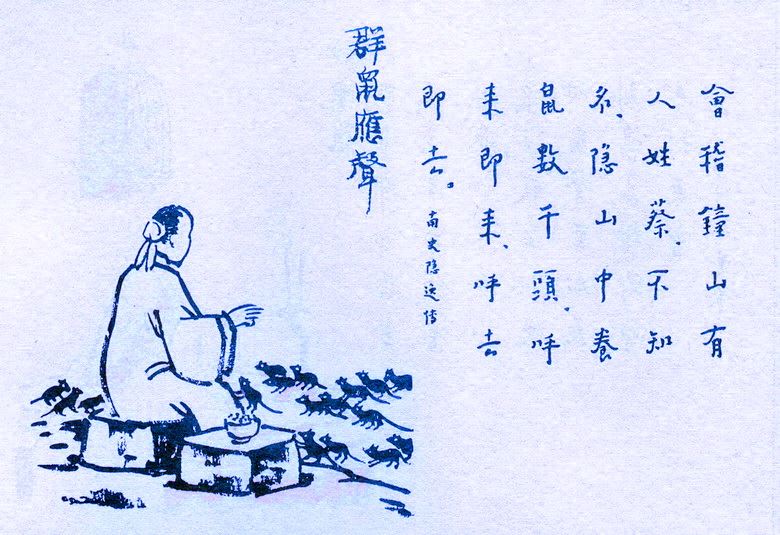 會稽鐘山有
人姓蔡、不知
名、隐山中養
鼠數千頭、呼
来即来、呼去
即去。南史隐逸傳
群鼠應聲